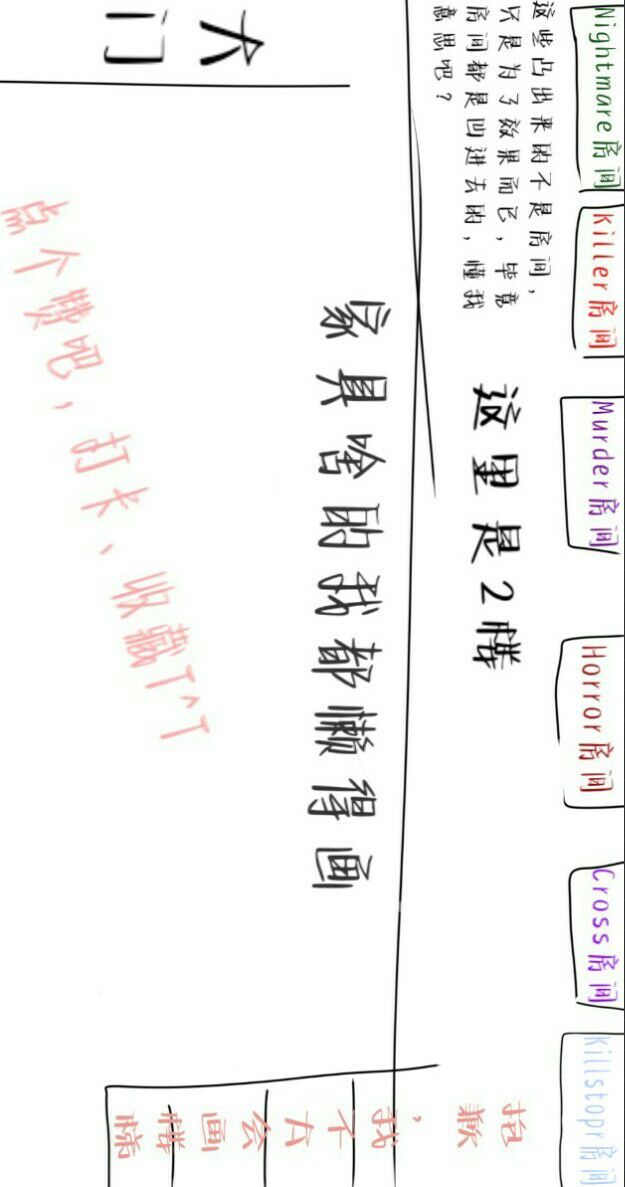 Nightmare房间
Killer房间
Murder房间
Horror房间
Cross房间
Killstopr房间
这些凸出来的不是房间，
只是为了效果而已，毕竟
房间都是凹进去的，懂我
意思吧？
这里是2楼
家具啥的我都懒得画
大门
点个赞吧，打卡、收藏T^T
抱歉，我不太会画楼梯